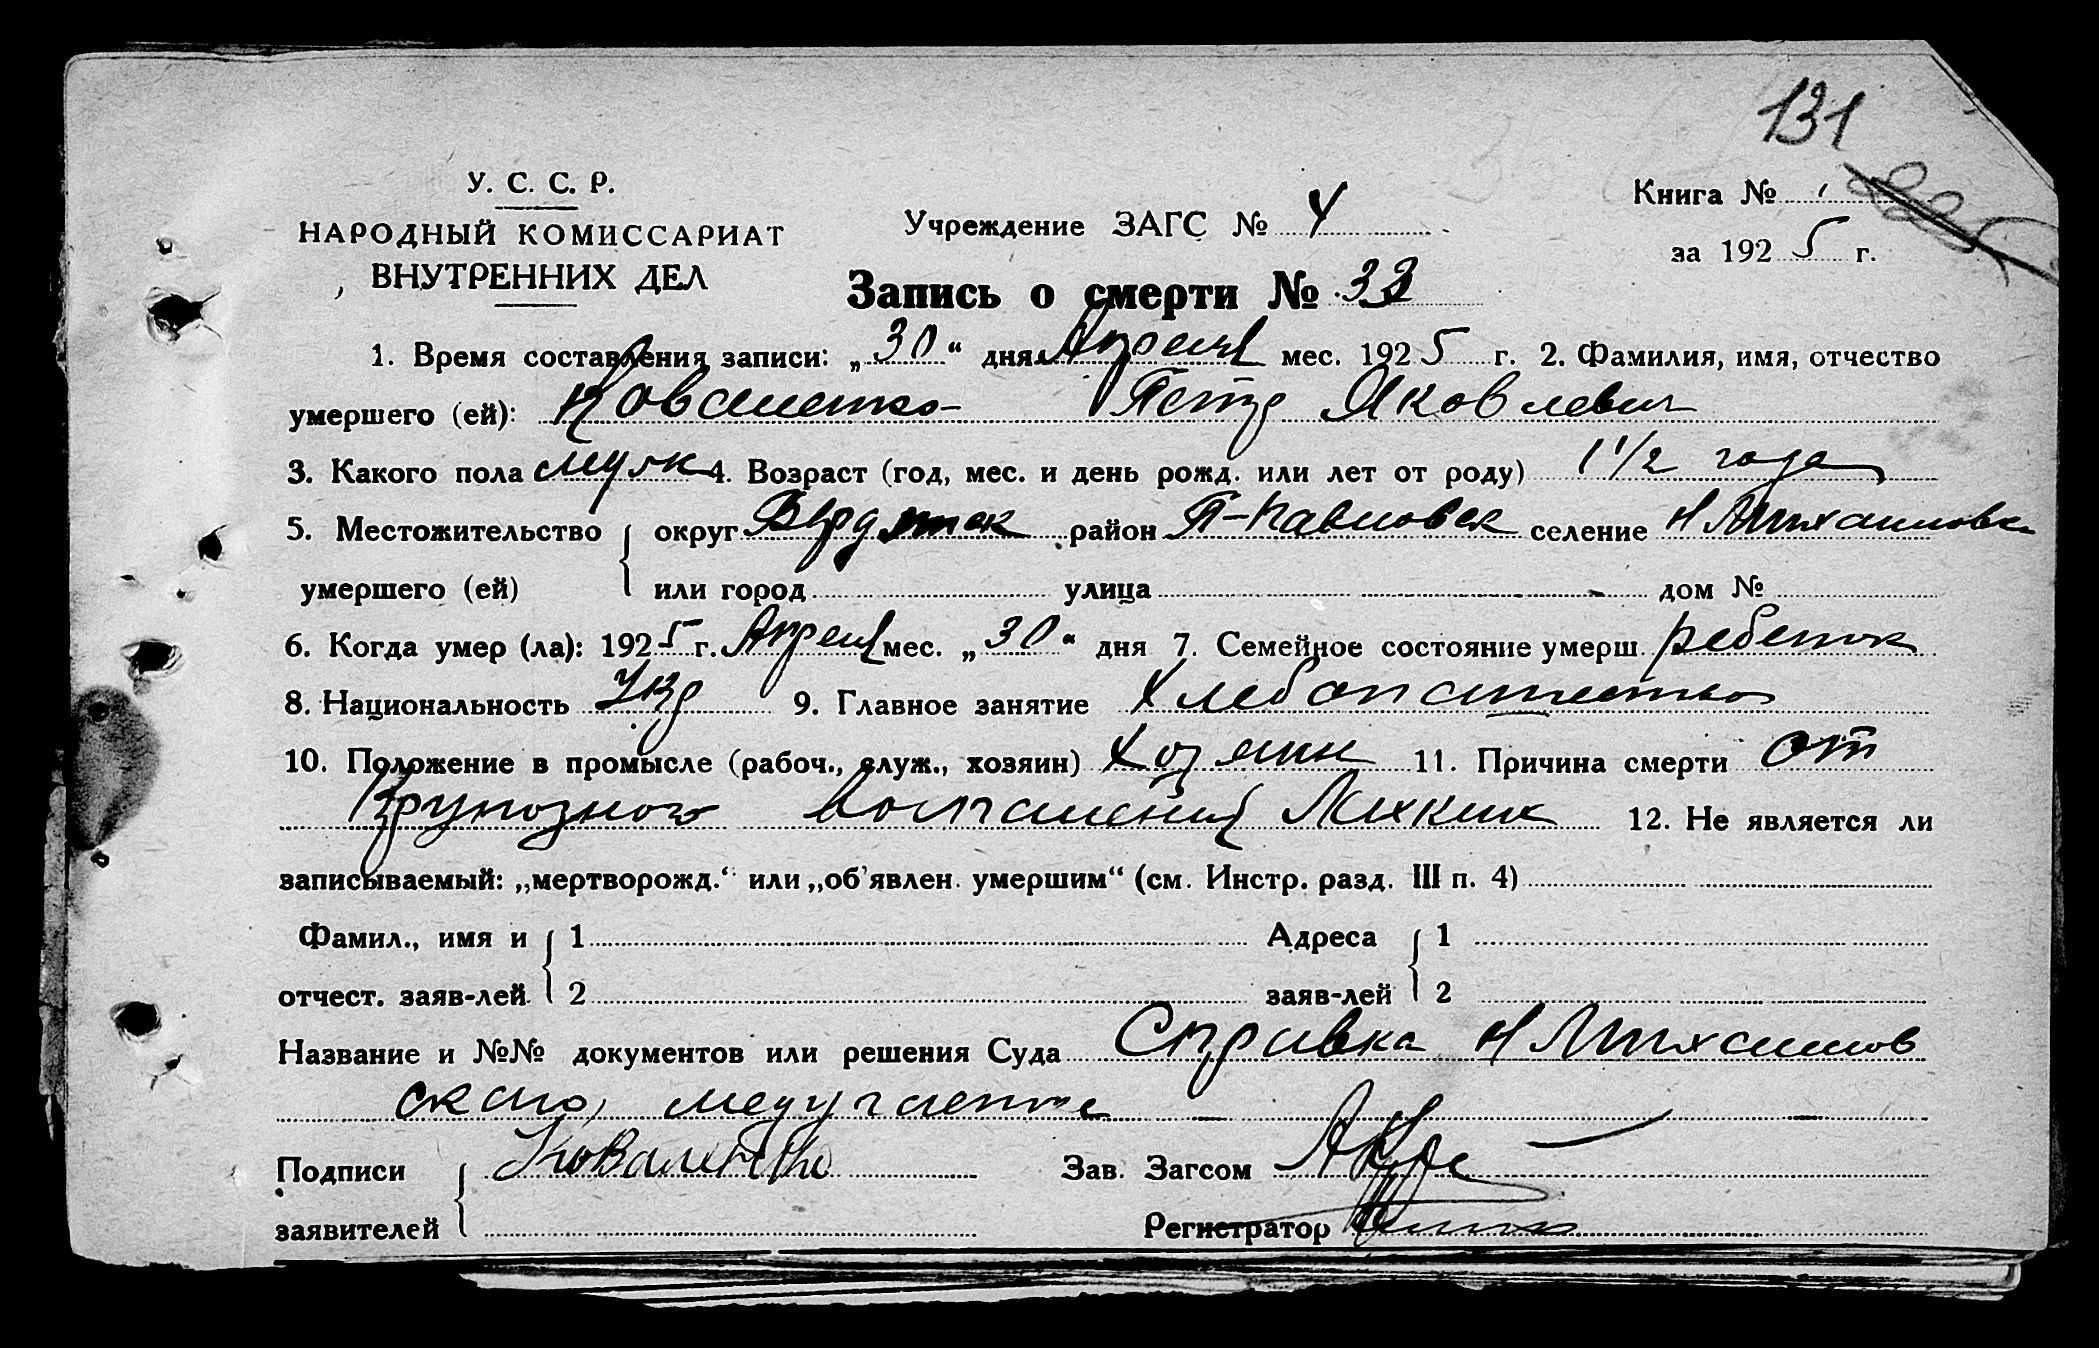 131
У. С. С. Р.
НАРОДНЫЙ КОМИССАРИАТ
ВНУТРЕННИХ ДЕЛ
Учреждение ЗАГС № 4
Книга №
за 1925 г.
Запись о смерти № 33
1. Время составления записи: „30“ дня Апреля мес. 1925 г. 2. Фамилия, имя, отчество
умершего (ей): Коваленко Петр Яковлевич
3. Какого пола муж 4. Возраст (год, мес. и день рожд. или лет от роду) 1 1/2 года
5. Местожительство округ район П-Павловск селение Н Михайловка
умершего (ей) или город улица дом №
6. Когда умер (ла): 1925 г. Апреля мес. „30“ дня 7. Семейное состояние умерш. ребенок
8. Национальность Укр 9. Главное занятие Хлебопашество
10. Положение в промысле (рабоч., служ., хозяин) Хозяин 11. Причина смерти от
Крупозного воспаления Легких 12. Не является ли
записываемый: „мертворожд.“ или „об'явлен. умершим“ (см. Инстр. разд. III п. 4)
Фамил., имя и 1 Адреса 1
отчест. заяв-лей 2 заяв-лей 2
Название и №№ документов или решения Суда Справка Н Михайлов
ского медучастка
Подписи Коваленко Зав. Загсом
заявителей Регистратор